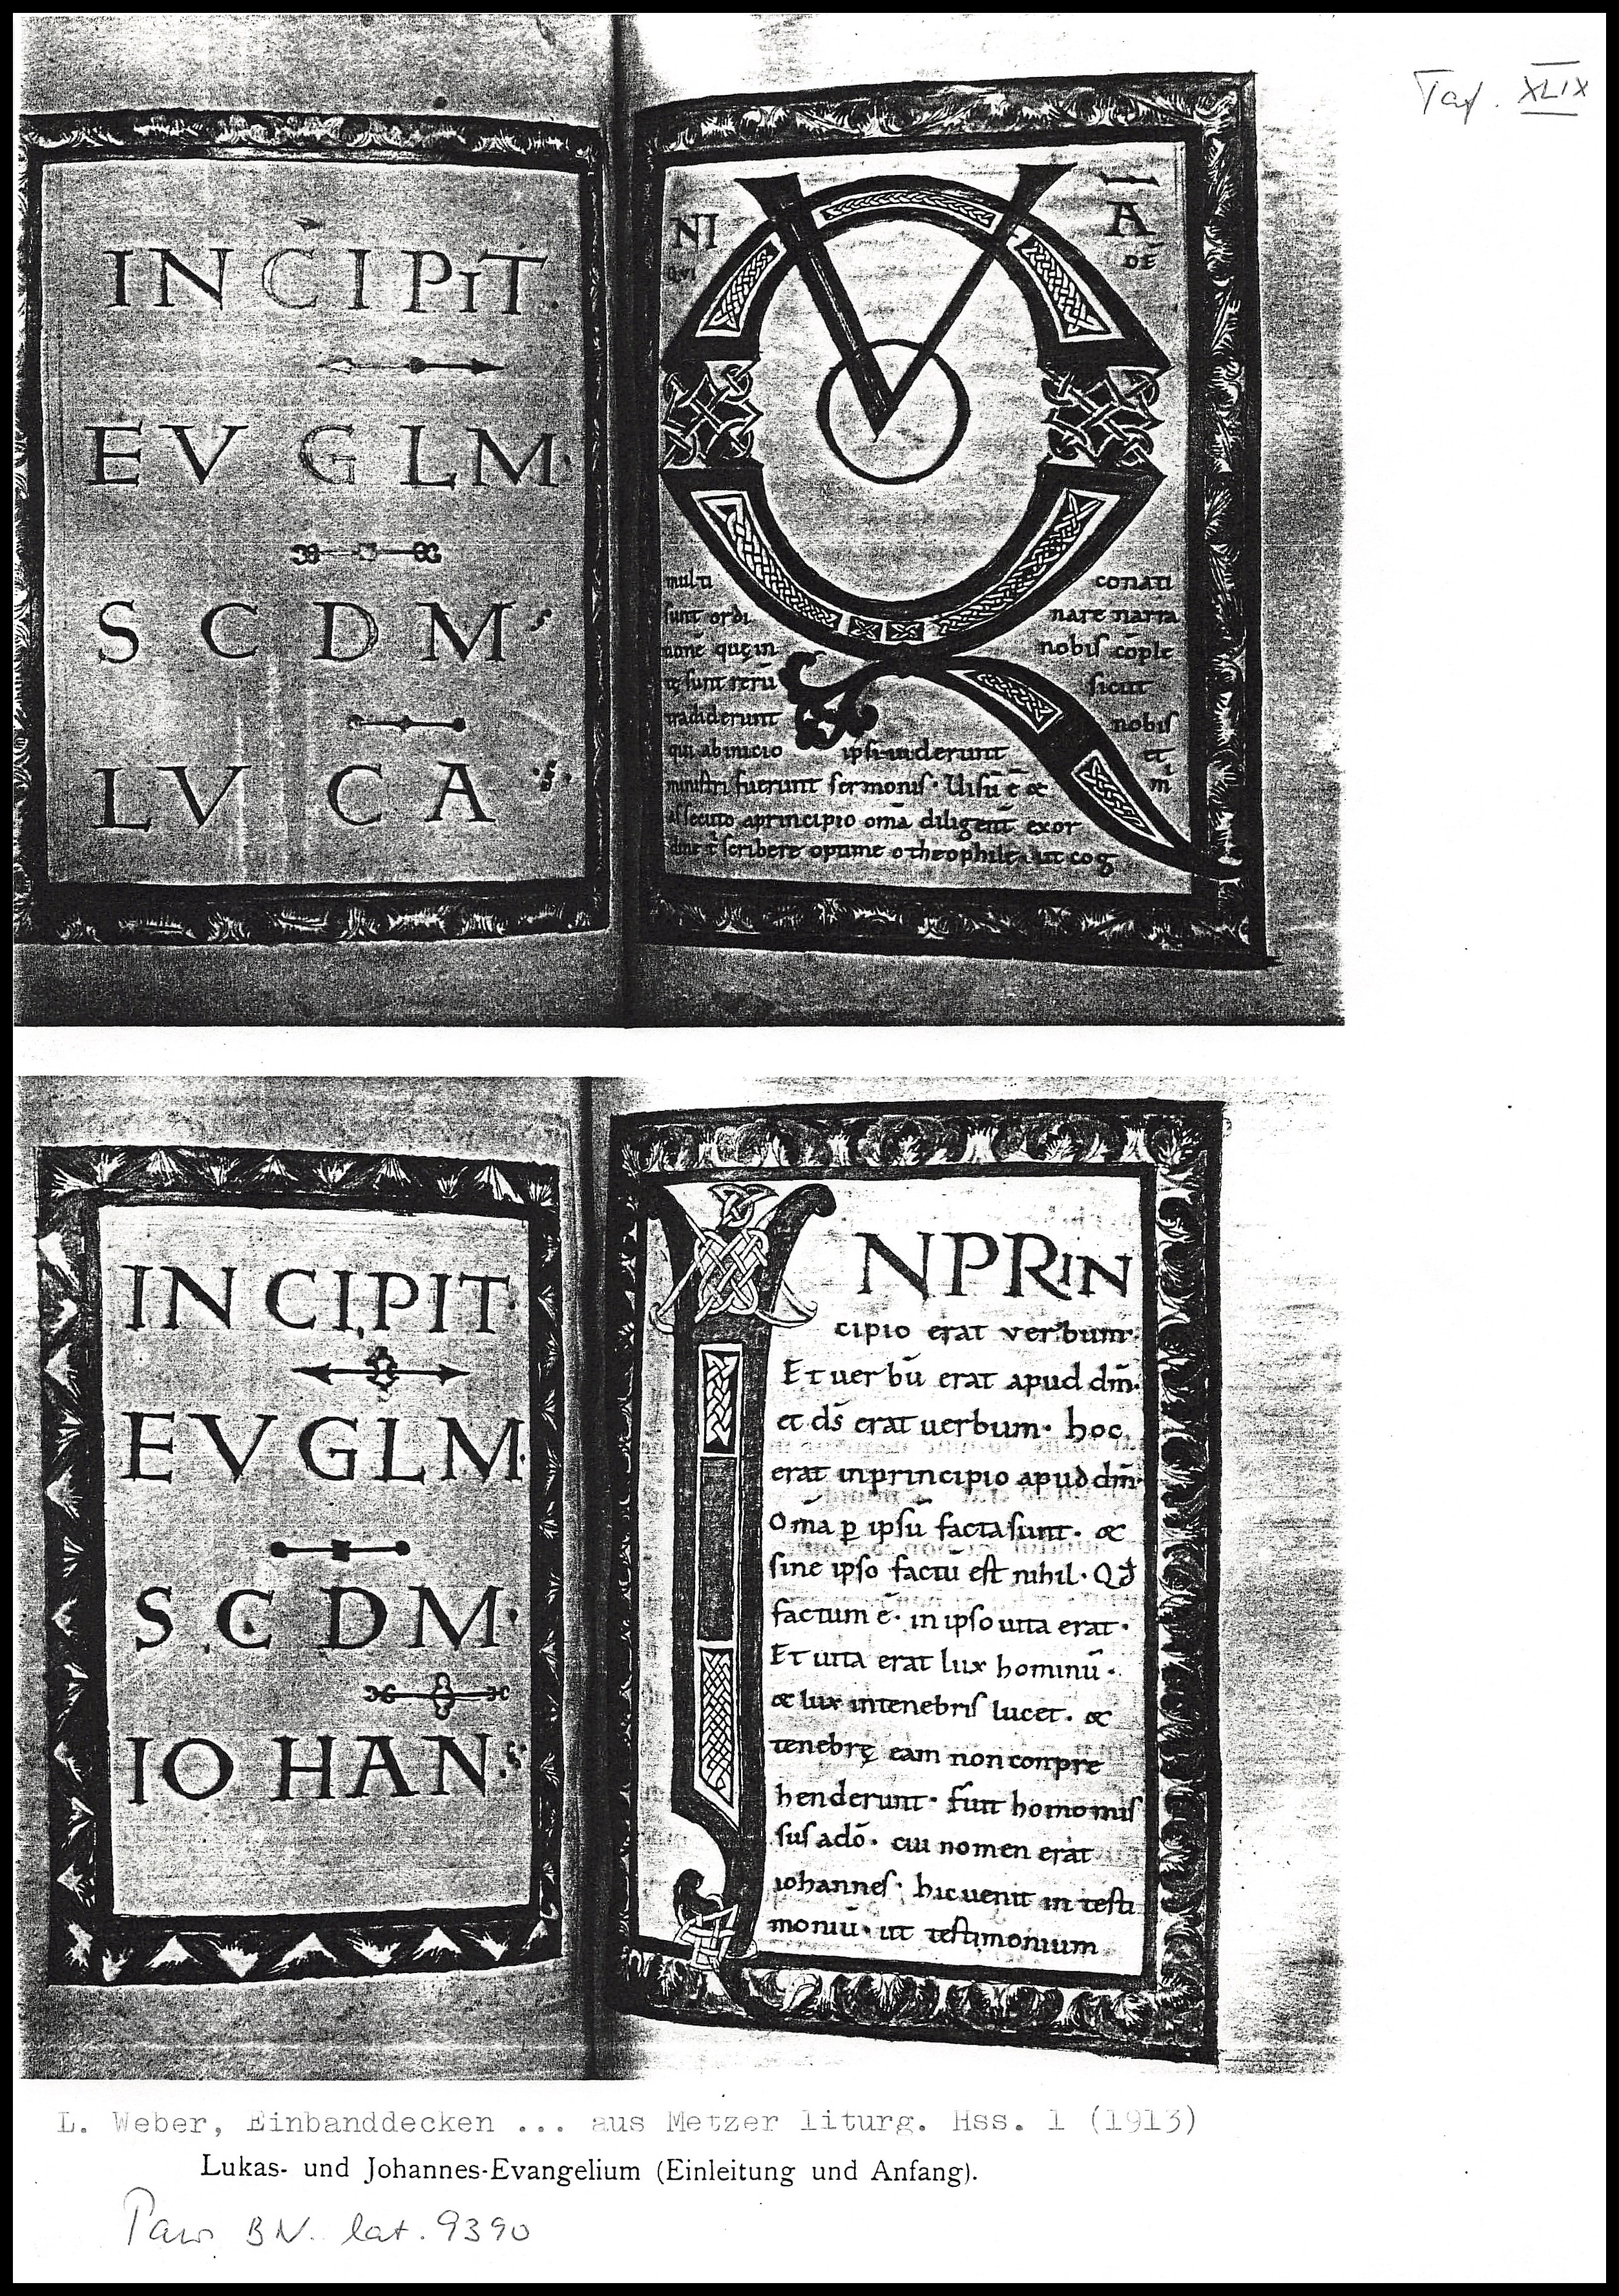 Taf. XLIX
INCIPIT.
EVGLM.
SCDM
LVCA
Q V NI A
QVI DĒ
multi conati
sunt ordi nare narra
tionē quę in nobiſ cōple
tę sunt rerū ſicut
tradiderunt nobiſ
qui ab inicio ipſi uiderunt et
miniſtri fuerunt ſermoniſ. Uiſū ē &
aſſecuto aprincipio omā diligent exor
ſcribere optime otheophile ut cog
INCIPIT.
EVGLM.
SCDM.
IOHAN
INPRIN
cipio erat verbum.
Et uerbū erat apud dm̄.
et dſ̄ erat uerbum. hoc
erat inprincipio apud dm̄.
Omā ꝑ ipſū facta ſunt. &
ſine ipſo factū eſt nihil. Qđ
factum ē. in ipſo uita erat.
Et uita erat lux hominū.
& lux intenebriſ lucet. &
tenebrę eam non conpre
henderunt. fuit homo miſ
ſuſ adō. cui nomen erat
iohanneſ. hic uenit in teſti
moniū. ut teſtimonium
L. Weber, Einbanddecken ... aus Metzer liturg. Hss. 1 (1913)
Lukas- und Johannes-Evangelium (Einleitung und Anfang).
Paris BN. lat. 9390